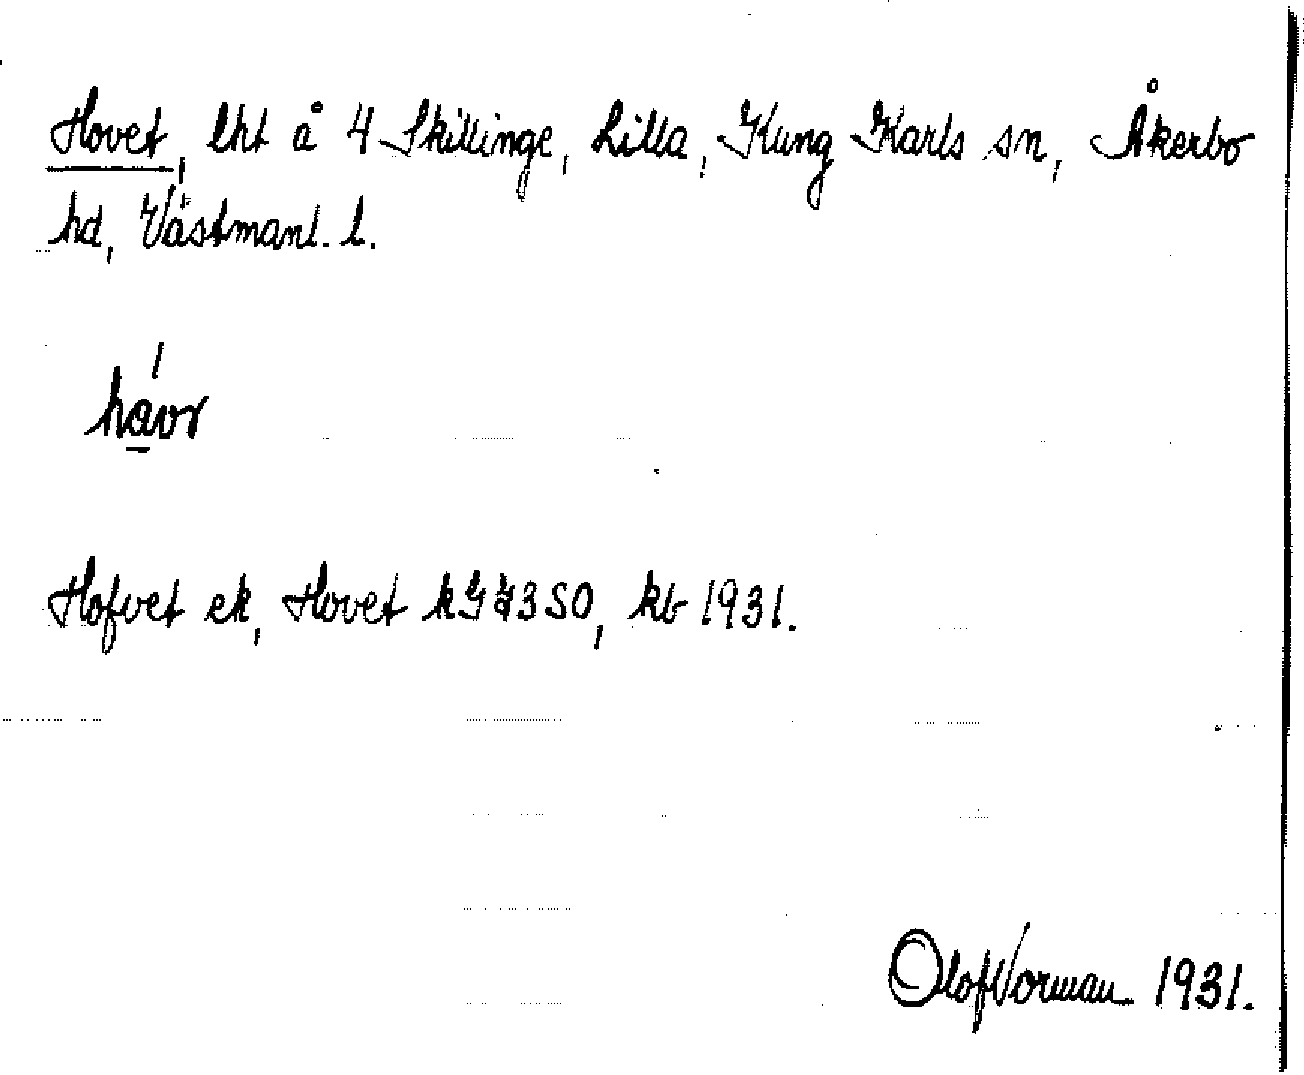 Hovet, lht å 4 Skillinge, Lilla, Kung Karls sn, Åkerbo
hd, Västmanl. l.
håvr
Hofvet ek, Hovet 73 SO, kb 1931.
Olof Vorman 1931.